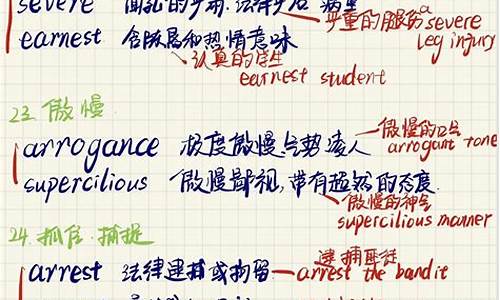 severe
严重的腿伤 a severe leg injury
earnest 含敬畏和热情意味
认真的学生
earnest student
23. 傲慢
arrogance 极度傲慢.气势凌人
傲慢的口气
arrogant tone
supercilious 傲慢鄙视,带有超然的态度.
傲慢的神气
supercilious manner
24. 抓住.捕捉
arrest 法律逮捕或拘留
逮捕匪徒
arrest the bandit